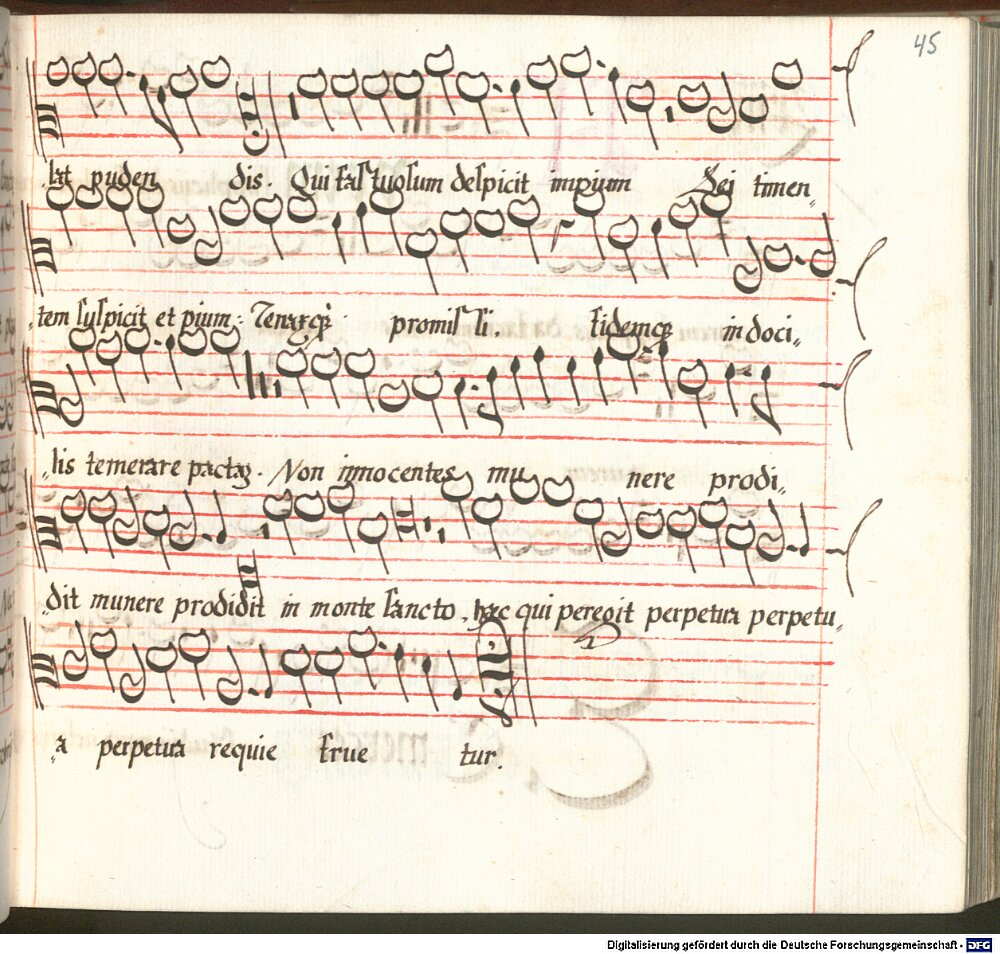 45
lat puden dis. Qui fastuosum despicit impium Dei timen„
„tem suspicit et pium: Tenaxq́; promissi. fidemq́; in doci„
„lis temerare pactaꝫ. Non innocentes mu nere prodi„
dit munere prodidit in monte sancto, hæc qui peregit perpetua perpetu„
„a perpetua requie frue tur.
Digitalisierung gefördert durch die Deutsche Forschungsgemeinschaft - DFG